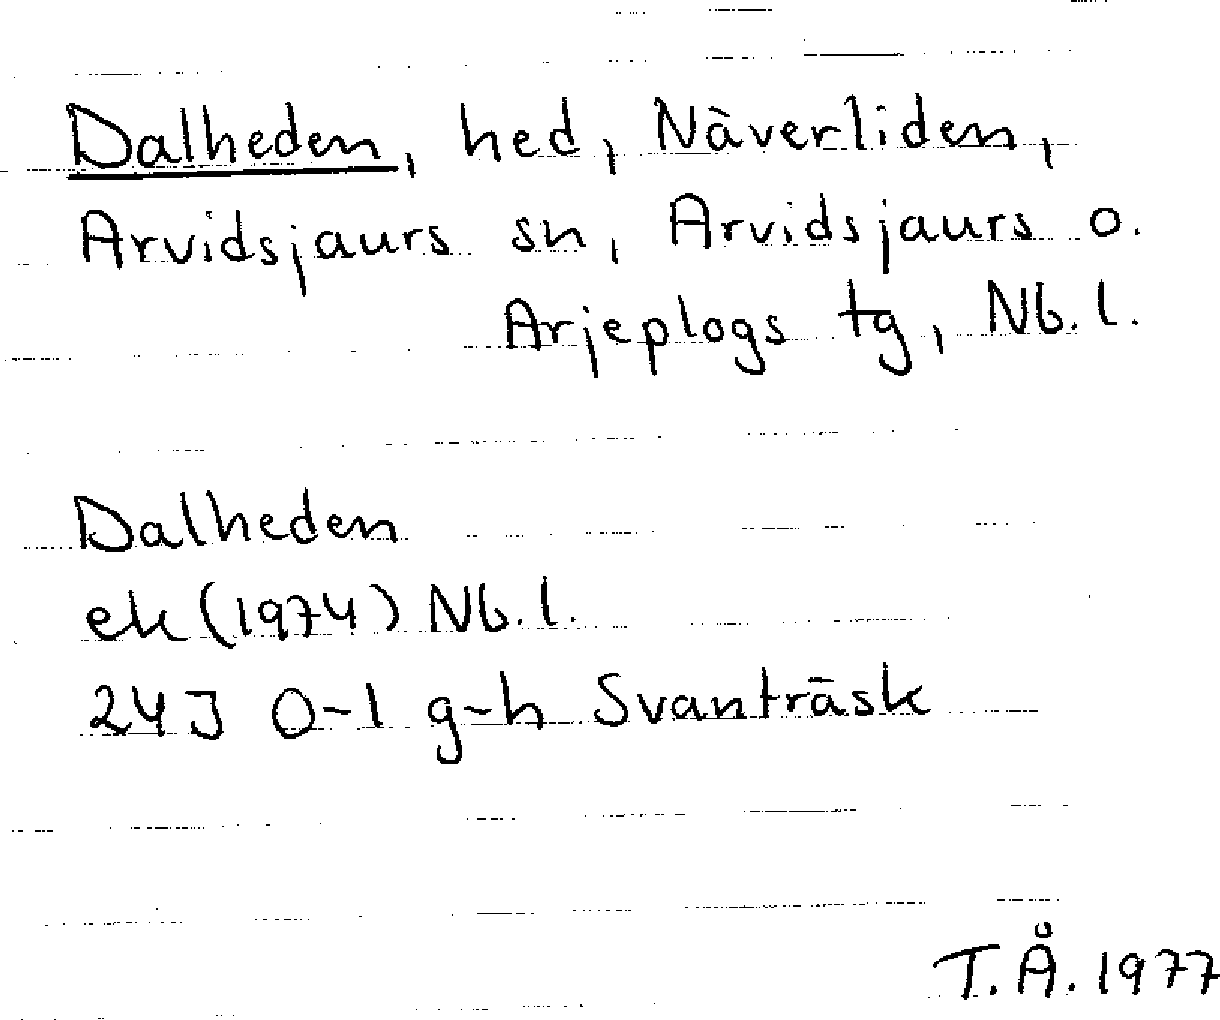 Dalheden, hed, Näverliden,
Arvidsjaurs sn, Arvidsjaurs o.
Arjeplogs tg, Nb. l.
Dalheden
ek (1974) Nb. l.
24J 0-1 g-h Svanträsk
T. Å. 1977